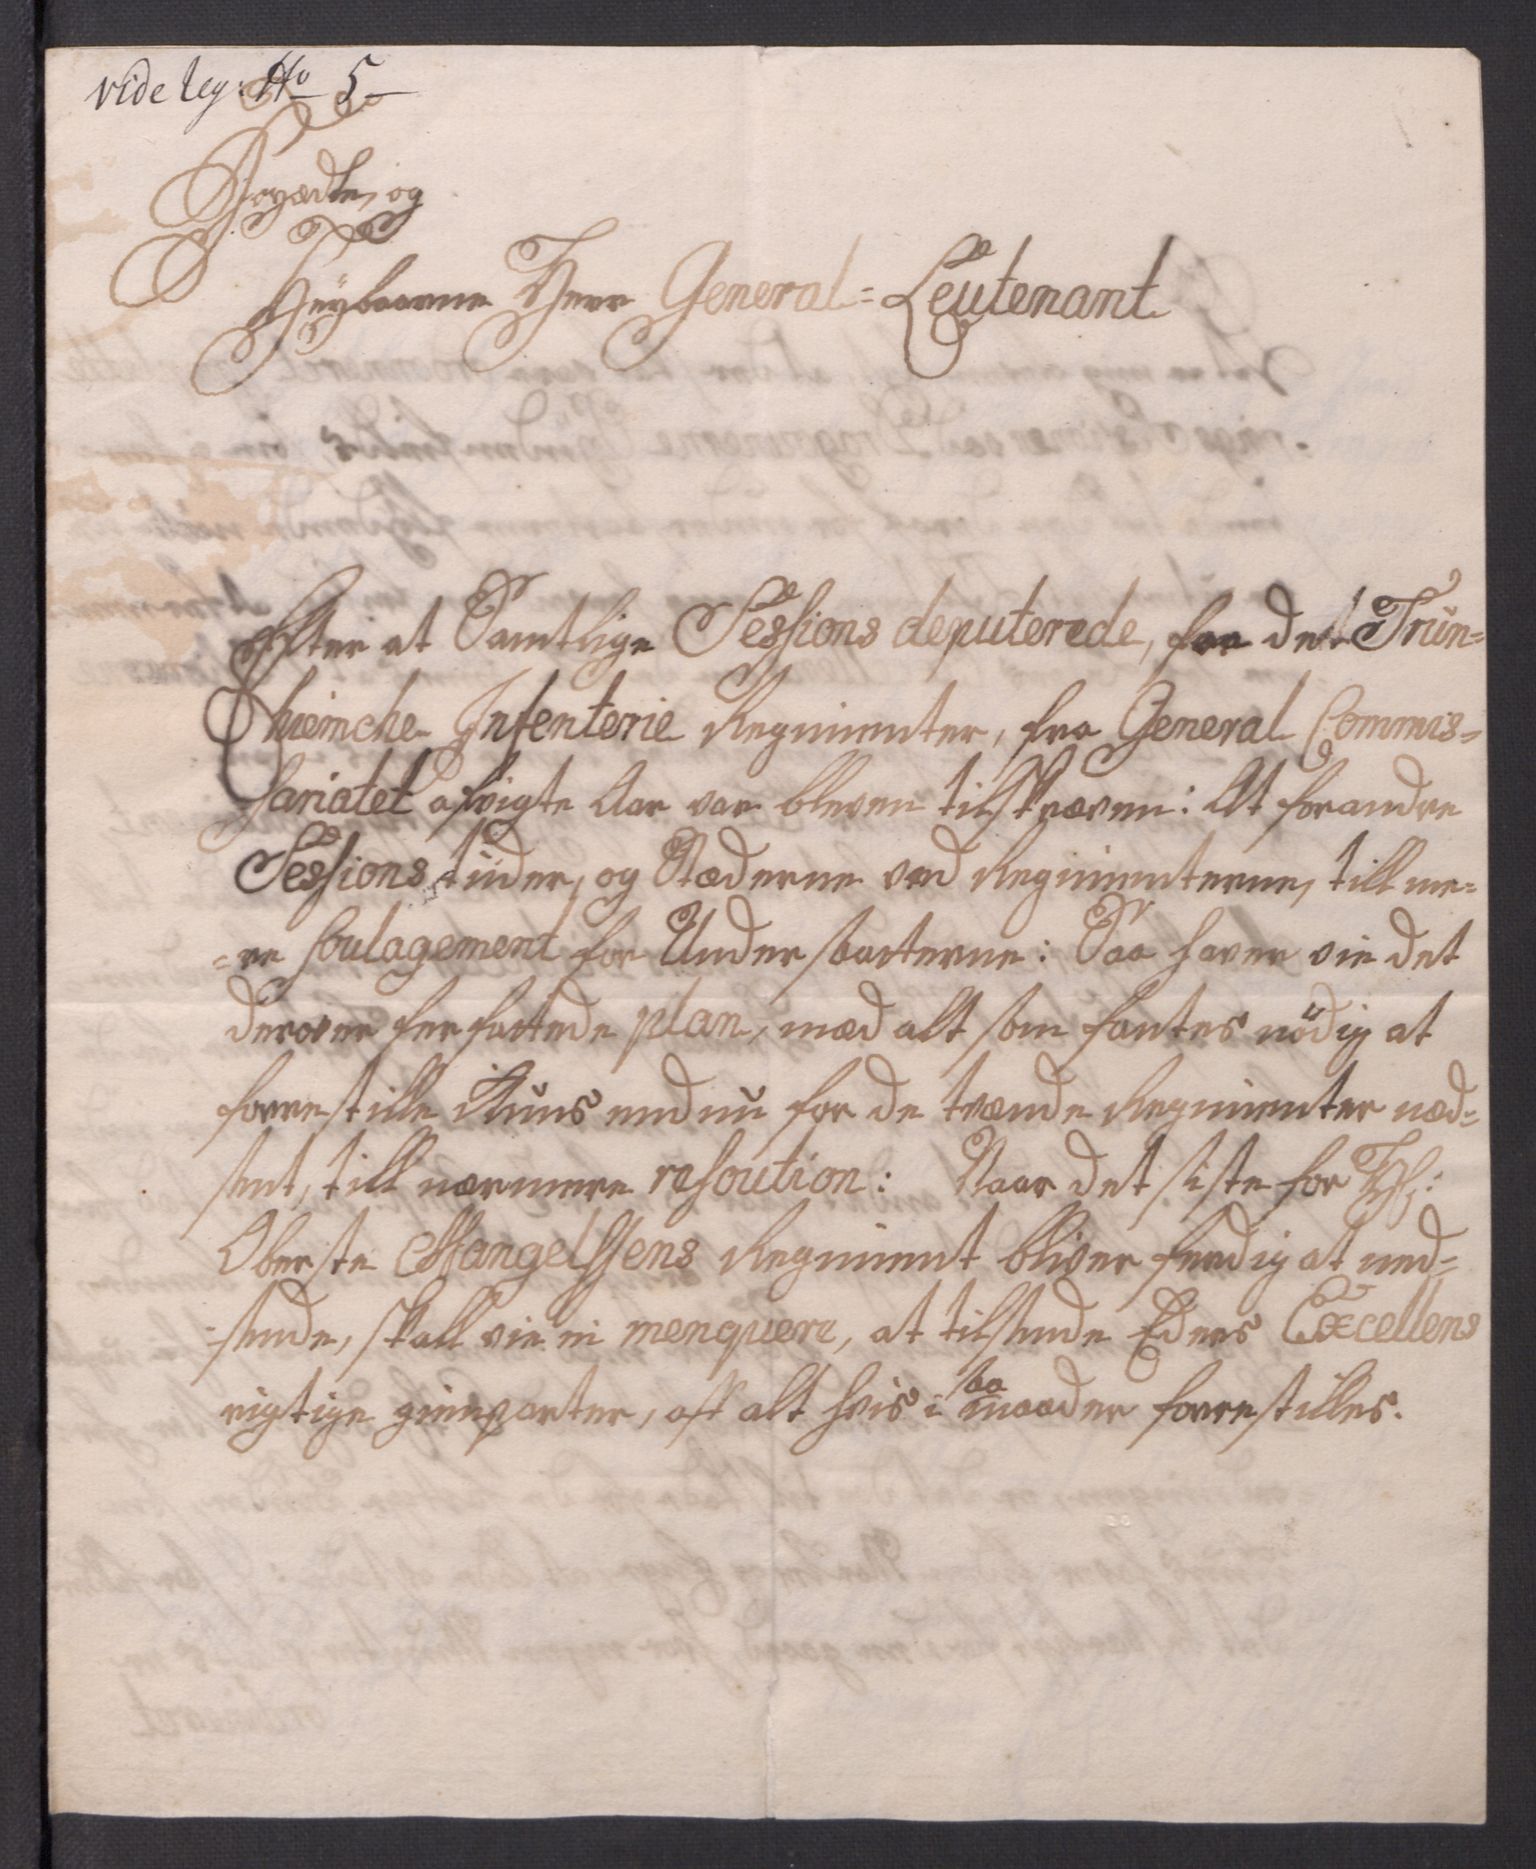 vide leg: No 5
Høyædle, og
Høybaarne Herr General= Leutenant
Efter at Samtlige Sessions deputerede, fra det Trun=
hiemche Infenterie Regimenter, fra General Commis=
sariatet afvigte Aar var bleven tilskreven: At forandre
Sessions tiider, og Stæderne ved Regimenterne, till me=
=re soulagement for Undersaatterne: Saa haver vie det
derover ferfattede plan, med alt som fantes nödig at
forrestille Kuns endnu for de tvende Regimenter ned=
sent, till nærmere resoution: Naar det siste for Hr:
Oberste Mangelsens Regiment bliver ferdig at ned=
=sende, skall vie ei menquere, at tilsende Eders Excellens
rigtige gienparter, aff alt hvis i saa maader forrestilles.